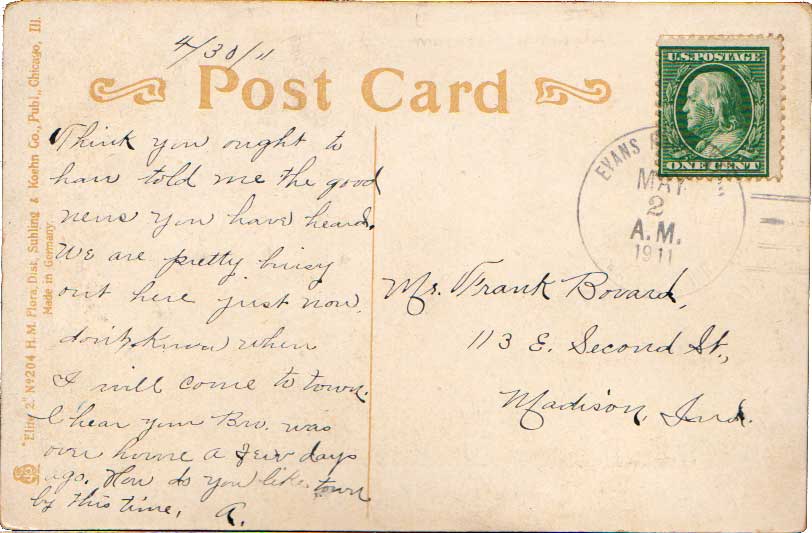 4/30/11
Post Card
U.S. POSTAGE
ONE CENT
EVANS
MAY
2
A.M.
1911
Think you ought to
have told me the good
news you have heard.
We are pretty busy
out here just now.
don't know when
I will come to town.
I hear your Bro. was
over home a few days
ago. How do you like town
by this time. A.
Mr. Frank Bovard,
113 E. Second St.,
Madison, Ind.
"Elite 2." No 204 H. M. Flora, Dist. Suhling & Koehn Co., Publ., Chicago, Ill.
Made in Germany.